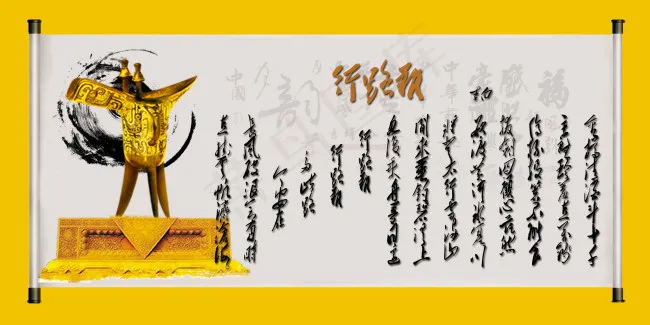 行路難
李白
金樽清酒斗十千
玉盤珍羞直萬錢
停杯投箸不能食
拔劍四顧心茫然
欲渡黃河冰塞川
將登太行雪滿山
閒來垂釣碧溪上
忽復乘舟夢日邊
行路難
行路難
多歧路
今安在
長風破浪會有時
直掛雲帆濟滄海
福
韻